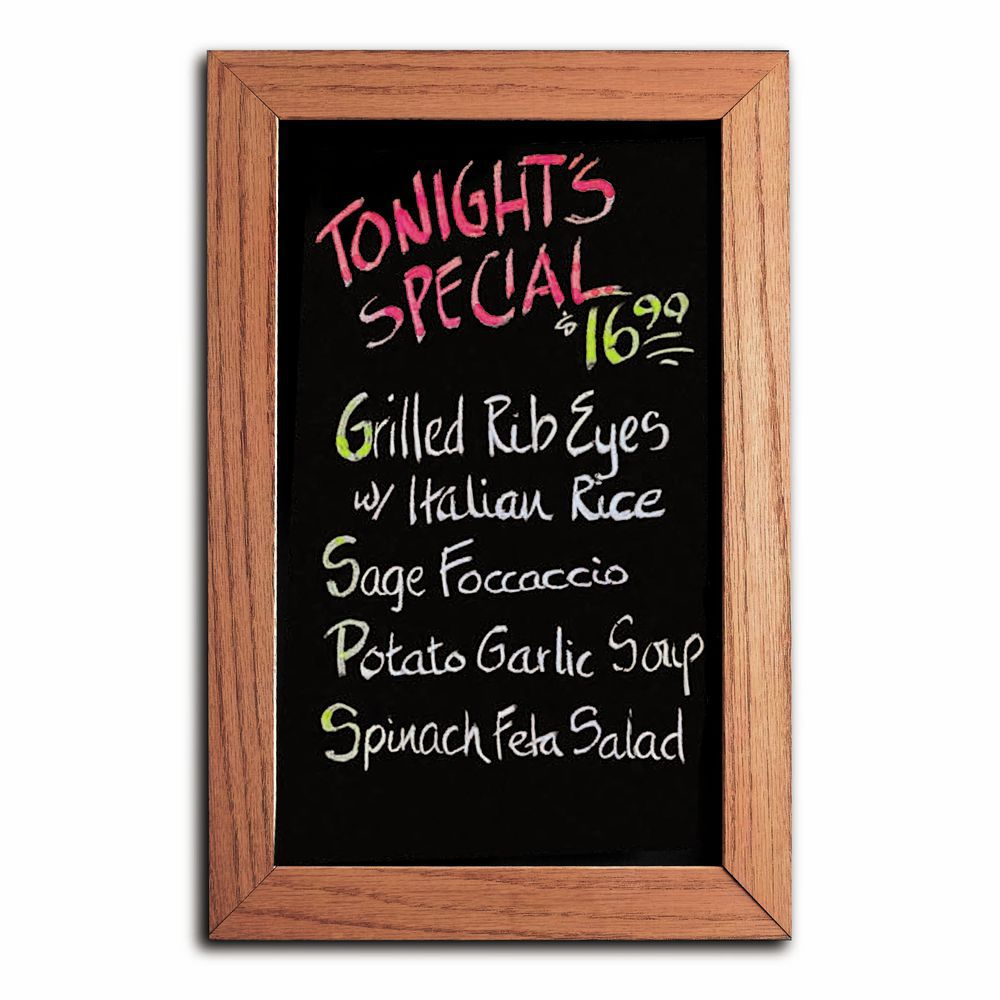 TONIGHT'S
SPECIAL
$16.99
Grilled Rib Eyes
w/ Italian Rice
Sage Foccaccio
Potato Garlic Soup
Spinach Feta Salad